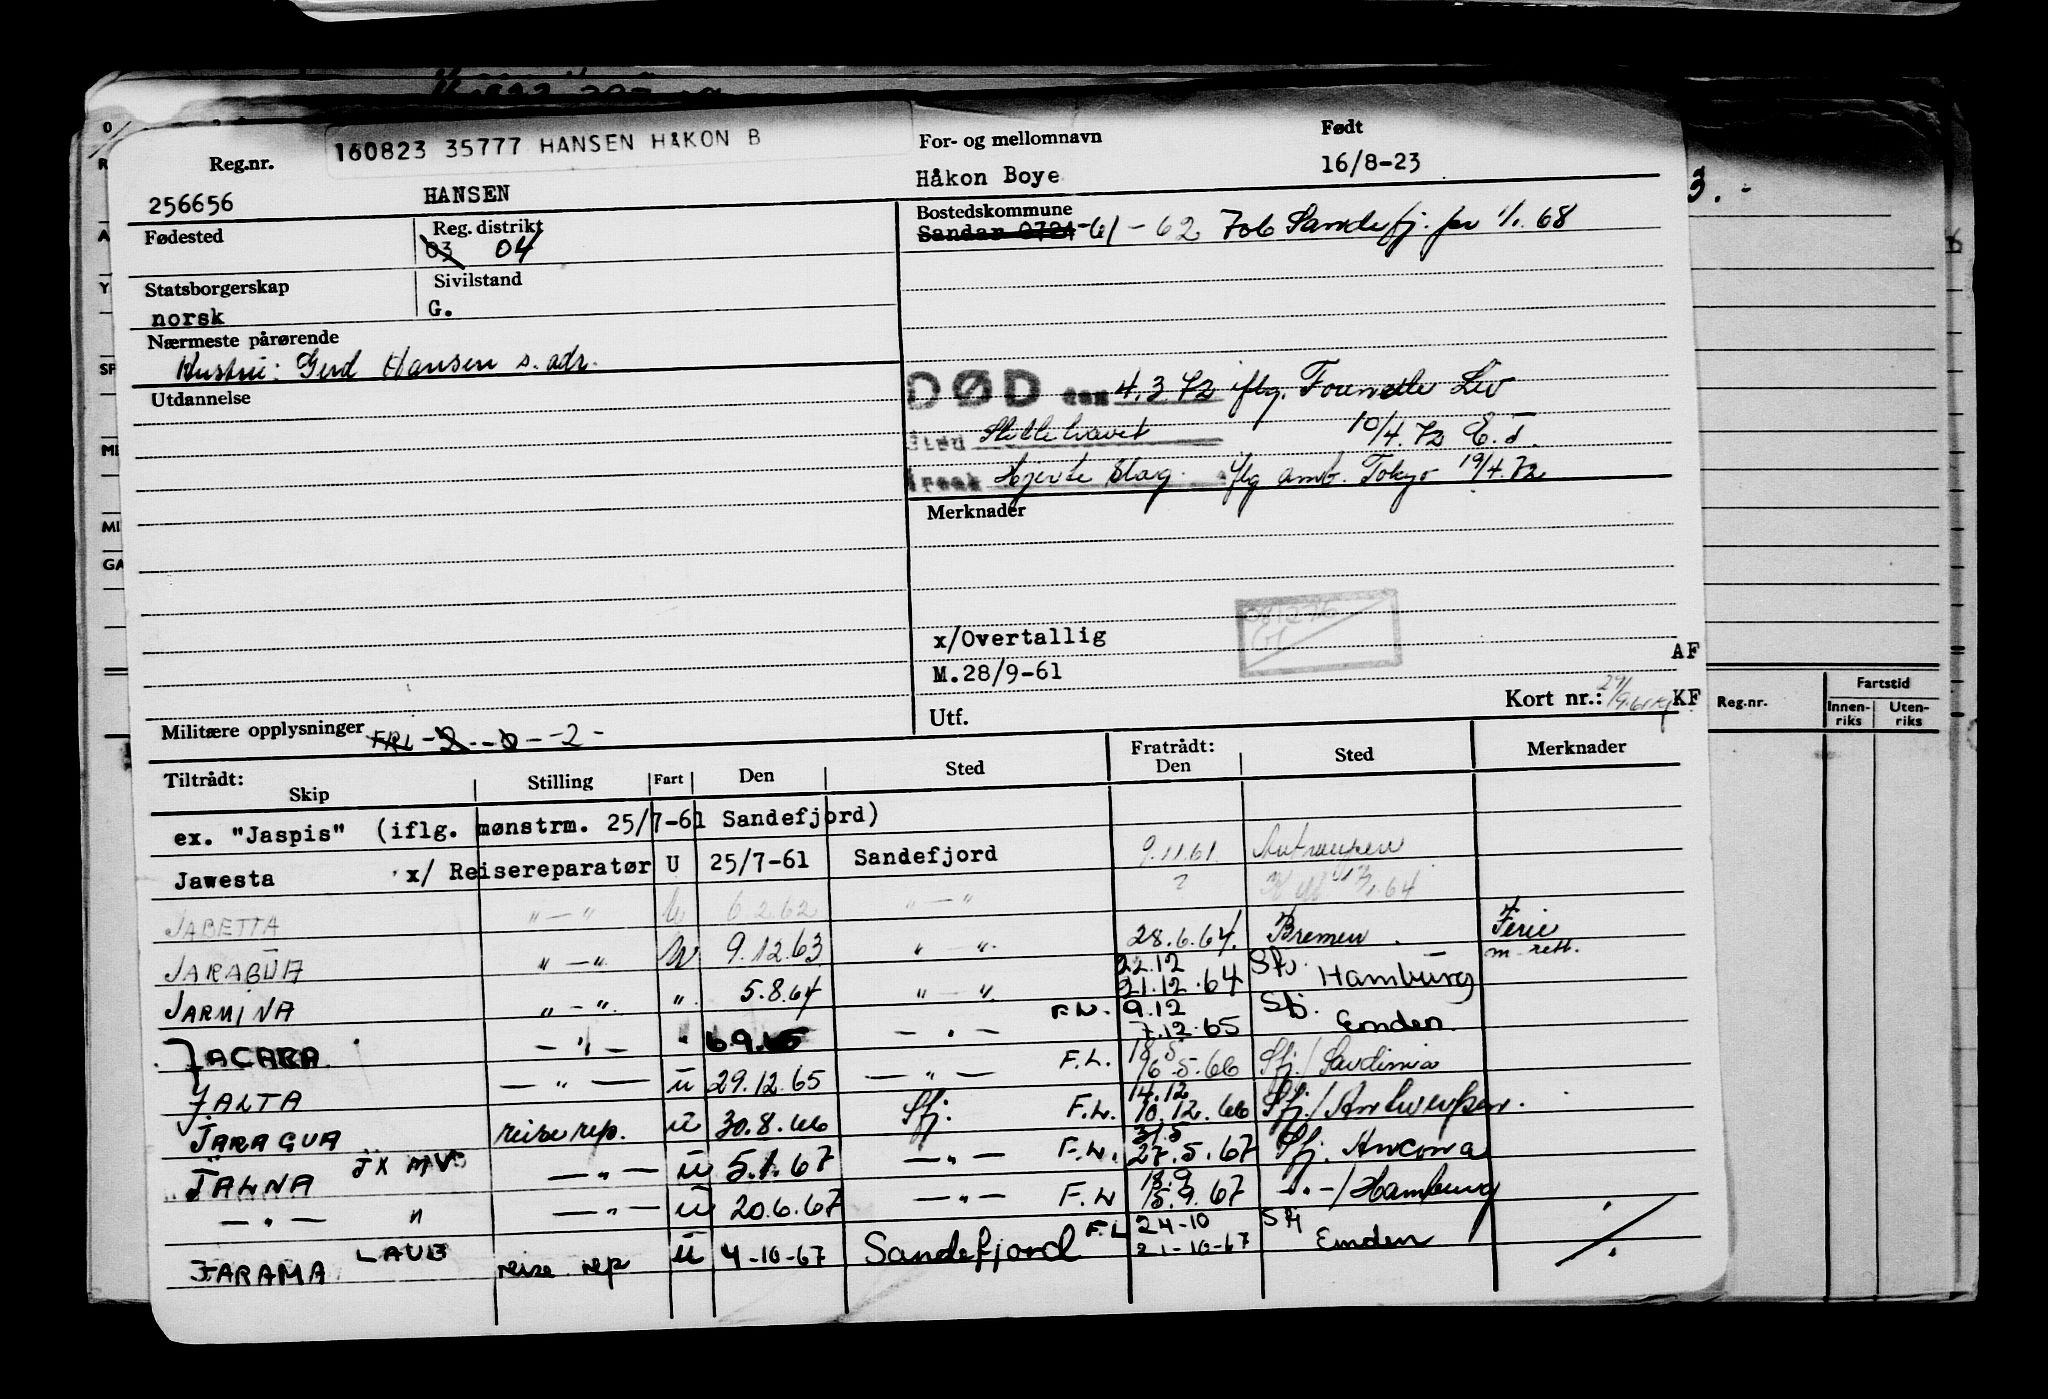 160823 35777 HANSEN HÅKON B
Reg.nr.
256656
HANSEN
For- og mellomnavn
Håkon Boye
Født
16/8-23
Fødested
Reg. distrikt
03 04
Bostedskommune
Sandar 0724 -61-62 706 Sandefj. pr 1/1.68
Statsborgerskap
norsk
Sivilstand
G.
Nærmeste pårørende
Hustru: Gerd Hansen s. adr.
Utdannelse
DØD den 4.3 72 iflg. Foundle Lev
Sted Stillehavet 10/4.72 E.T.
Årsak Hjerte slag. iflg amb. Tokyo 19/4.72
Merknader
x/Overtallig
M.28/9-61
AF
Utf.
Kort nr.: KF
Militære opplysninger FRL-2--0--2-
Reg.nr.
Fartstid
Innen-
riks
Uten-
riks
Tiltrådt:
Skip
Stilling
Fart
Den
Sted
Fratrådt:
Den
Sted
Merknader
ex. "Jaspis" (iflg. mønstrm. 25/7-61 Sandefjord)
Jawesta x/ Reisereparatør U 25/7-61 Sandefjord 9.11.61 Antwerpen
JABETTA "—" U 6.2.62 "—" ? 1.64
JARAGUA "—" U 9.12.63 "—" 28.6.64. Bremen. Ferie
m. rett.
JARMINA "—" " 5.8.64 "—" 22.12 21.12.64 Sfj. Hamburg
JACARA —"— " 6.9.65 —"— F.L. 9.12 7.12.65 Sfj. Emden.
JALTA —"— U 29.12.65 —"— F.L. 18.5 16.5.66 Sfj./Sardinia
JARAGUA reise rep. U 30.8.66 Sfj. F.L. 14.12 10.12.66 Sfj./Antwerpen.
JALNA JX MV —"— U 5.1.67 —"— F.L. 31.5 27.5.67 Sfj. Ancona
—"— " —"— U 20.6.67 —"— F.L 18.9 15.9.67 -"-/Hamburg
JARAMA LAUB reise rep U 4-10-67 Sandefjord F.L 24-10 21-10-67 Sfj Emden